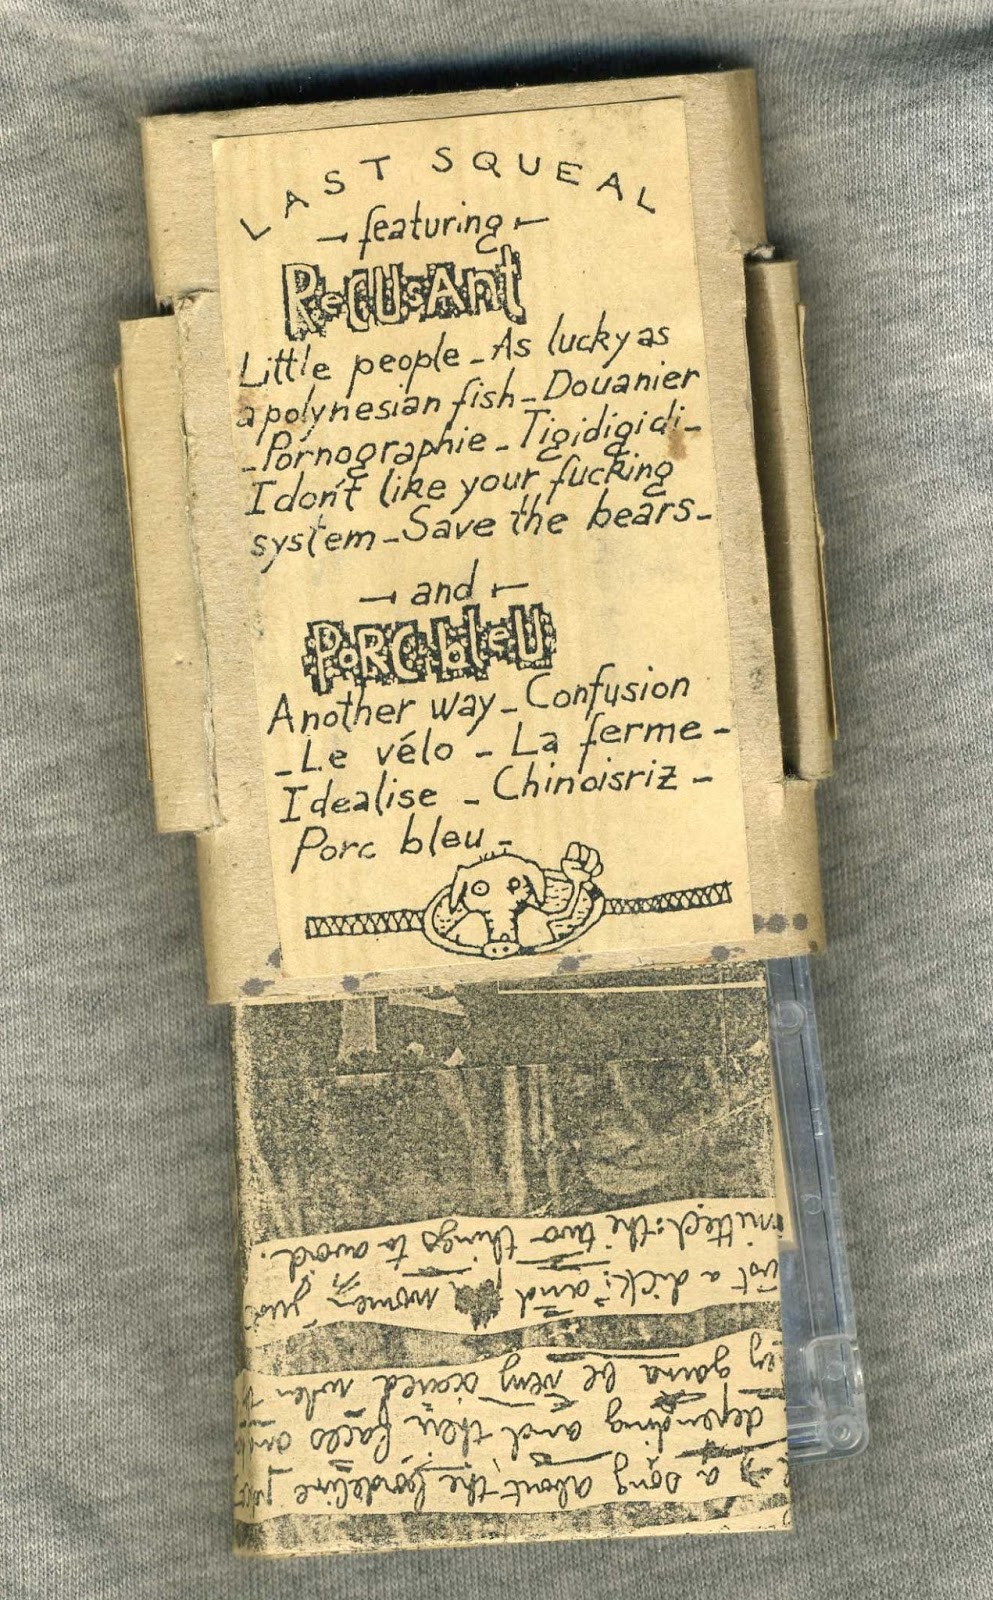 LAST SQUEAL
featuring
RECUSANT
Little people _ As lucky as
a polynesian fish _ Douanier
_ Pornographie _ Tigidigidi _
I don't like your fucking
system _ Save the bears _
and
PORC bleU
Another way _ Confusion
_ Le vélo _ La ferme _
Idealise _ Chinoisriz _
Porc bleu _
a song about the bordeline
depending and their faces
gonna be very scared when
a dick: and women just
the two things to avoid.